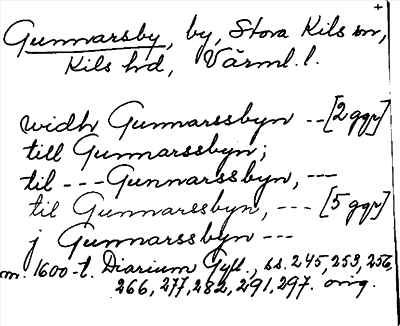 Gunnarsby, by, Stora Kils sn,
Kils hd, Värml. l.
widh Gunnarssbyn -- [2 ggr]
till Gunnarssbyn;
til --- Gunnarssbyn, ---
til Gunnarssbyn, --- [5 ggr]
j Gunnarssbyn ---
m. 1600-t. Diarium Gyll., ss. 245, 253, 256,
266, 277, 282, 291, 297. orig.